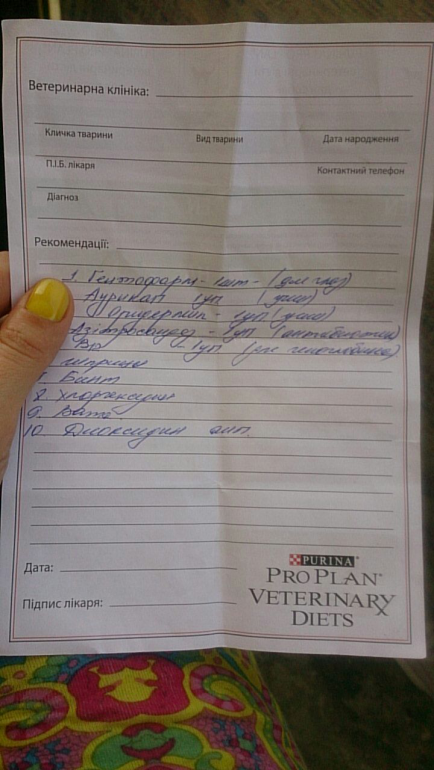 Ветеринарна клініка:
Кличка тварини Вид тварини Дата народження
П.І.Б. лікаря Контактний телефон
Діагноз
Рекомендації:
1. Гентафарм - 1шт - (для глаз)
Аурикап 1уп (уши)
Отидермин - 1уп (уши)
- 1уп (антибиотик)
1уп (для
шприцы
Бинт
8. Хлоргексидин
9. Вата
10. Диоксидин амп.
Дата:
Підпис лікаря:
PURINA
PRO PLAN
VETERINARY
DIETS